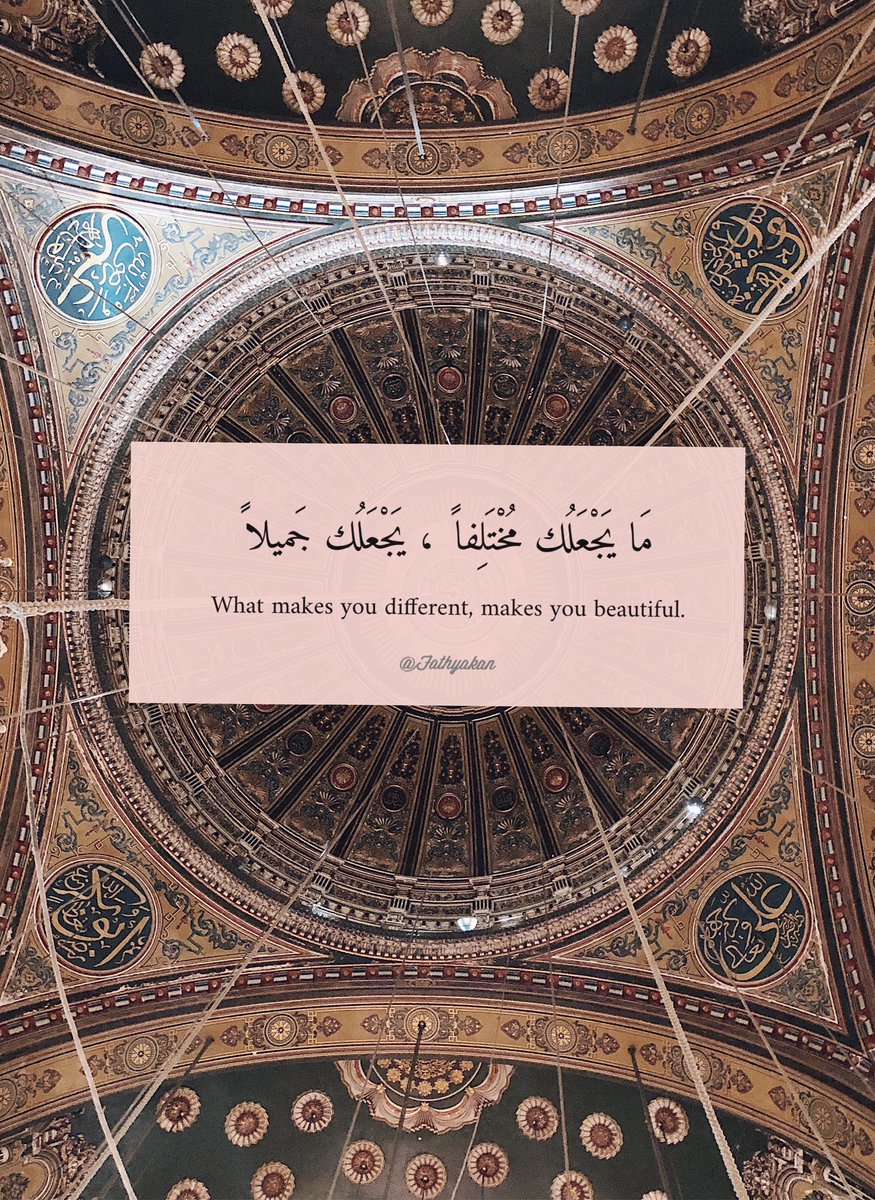 مَا يَجْعَلُك مُخْتَلِفاً ، يَجْعَلُك جَميلاً
What makes you different, makes you beautiful.
@Fathyakan